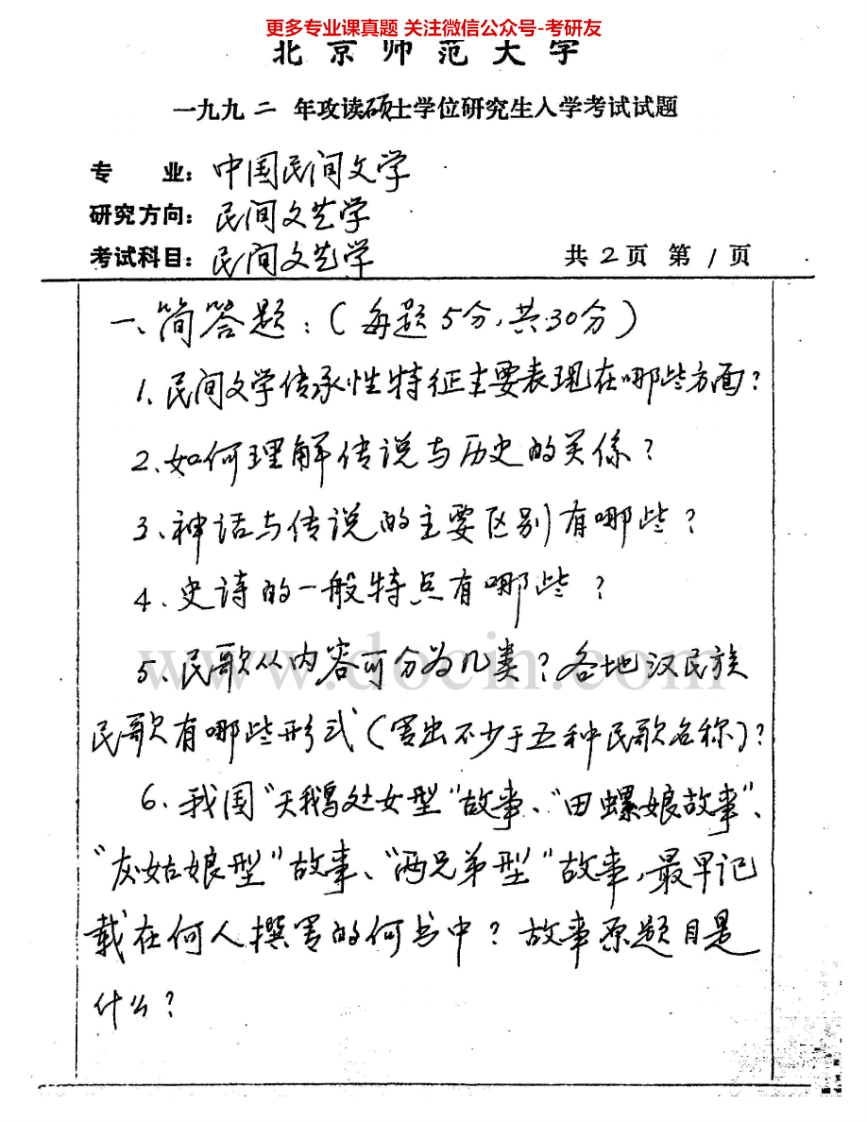 更多专业课真题 关注微信公众号-考研友
北京师范大学
一九九二 年攻读硕士学位研究生入学考试试题
专 业：中国民间文学
研究方向：民间文艺学
考试科目：民间文艺学 共2页 第1页
一、简答题：（每题5分，共30分）
1、民间文学传承性特征主要表现在哪些方面？
2、如何理解传说与历史的关係？
3、神话与传说的主要区别有哪些？
4、史诗的一般特点有哪些？
5、民歌从内容可分为几类？各地汉民族
民歌有哪些形式（写出不少于五种民歌名称）？
6、我国“天鹅处女型”故事、“田螺娘故事”、
“灰姑娘型”故事、“两兄弟型”故事，最早记
载在何人撰写的何书中？故事原题目是
什么？
www.docin.com